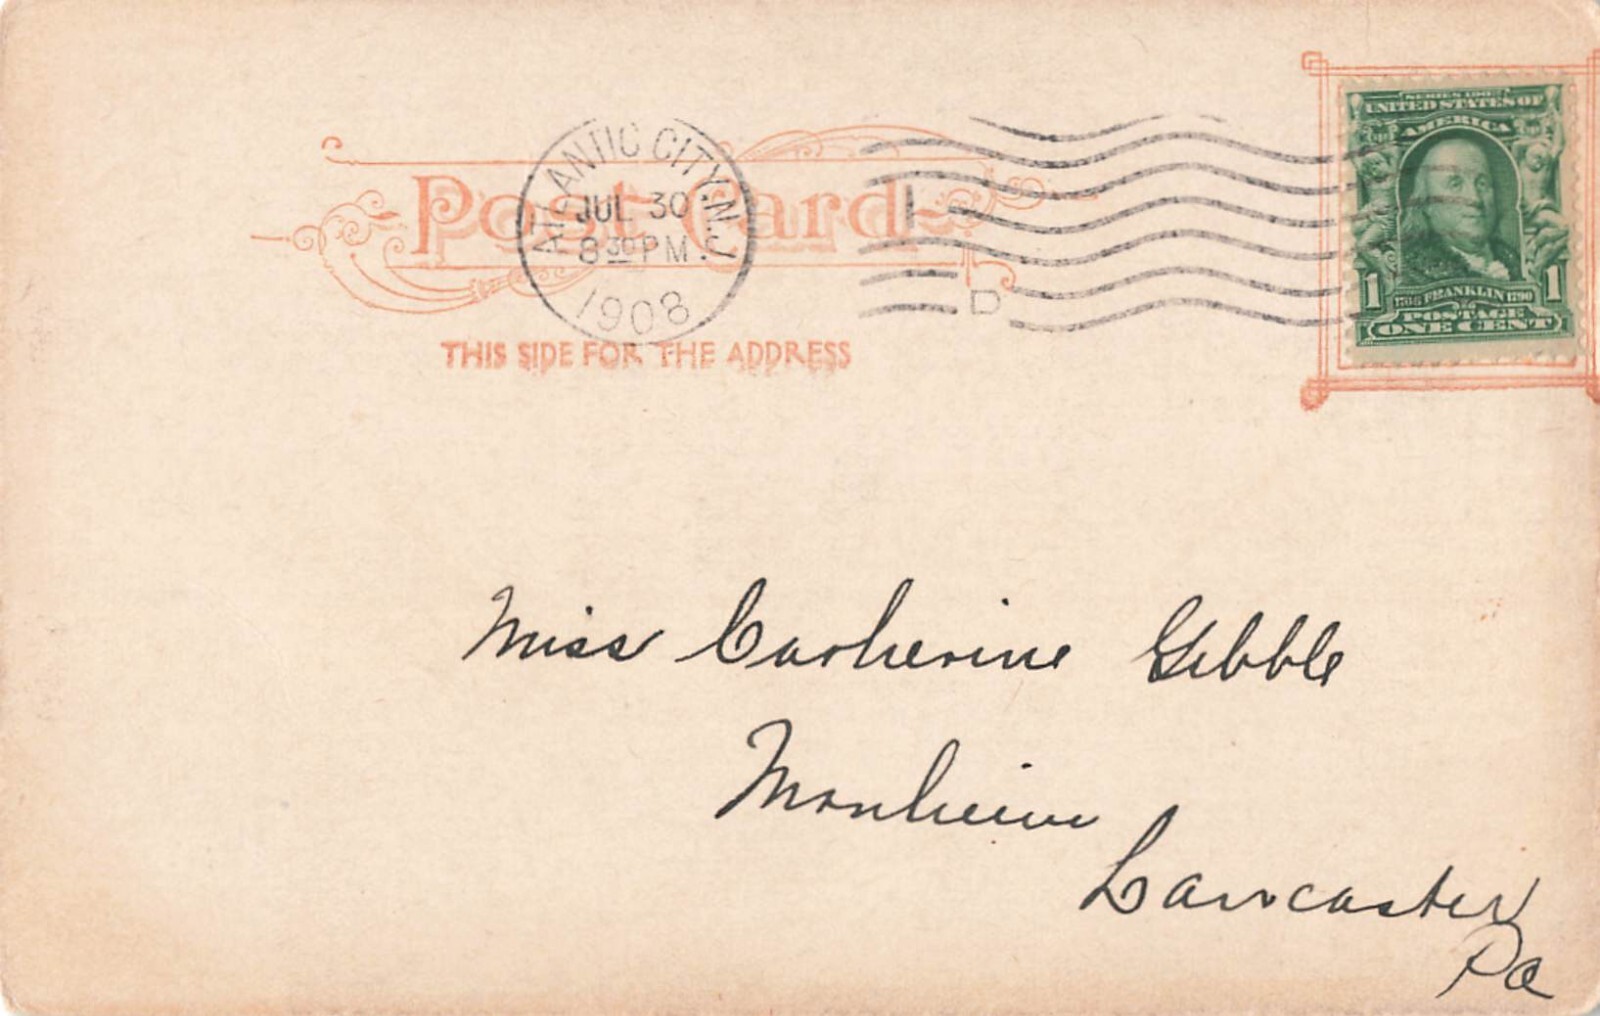 Post Card
ATLANTIC CITY, N.J.
JUL 30
8 30 PM
1908
1
D
THIS SIDE FOR THE ADDRESS
SERIES 1902
UNITED STATES OF
AMERICA
1 1706 FRANKLIN 1790 1
POSTAGE
ONE CENT
Miss Catherine Gibble
Manheim
Lancaster
Pa